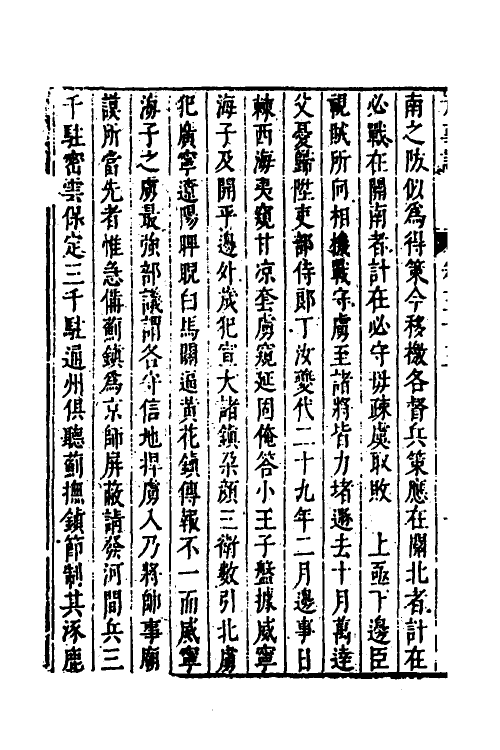 南之阪似爲得策今移檄各督兵策應在關北者計在
必戰在關南者計在必守毋疎虞取敗　上亟下邊臣
視賊所向相機戰守虜至諸將皆力堵遁去十月萬達
父憂歸陞吏部侍郎丁汝夔代二十九年二月邊事日
棘西海夷窺甘凉套虜窺延固俺答小王子盤據威寧
海子及開平邊外歲犯宣大諸鎮朶顔三衛數引北虜
犯廣寧遼陽睥睨白馬關逼黃花鎮傳報不一而威寧
海子之虜最強部議謂各守信地捍虜入乃將帥事廟
謨所當先者惟急備薊鎮爲京師屏蔽請發河間兵三
千駐密雲保定三千駐通州俱聽薊撫鎮節制其涿鹿